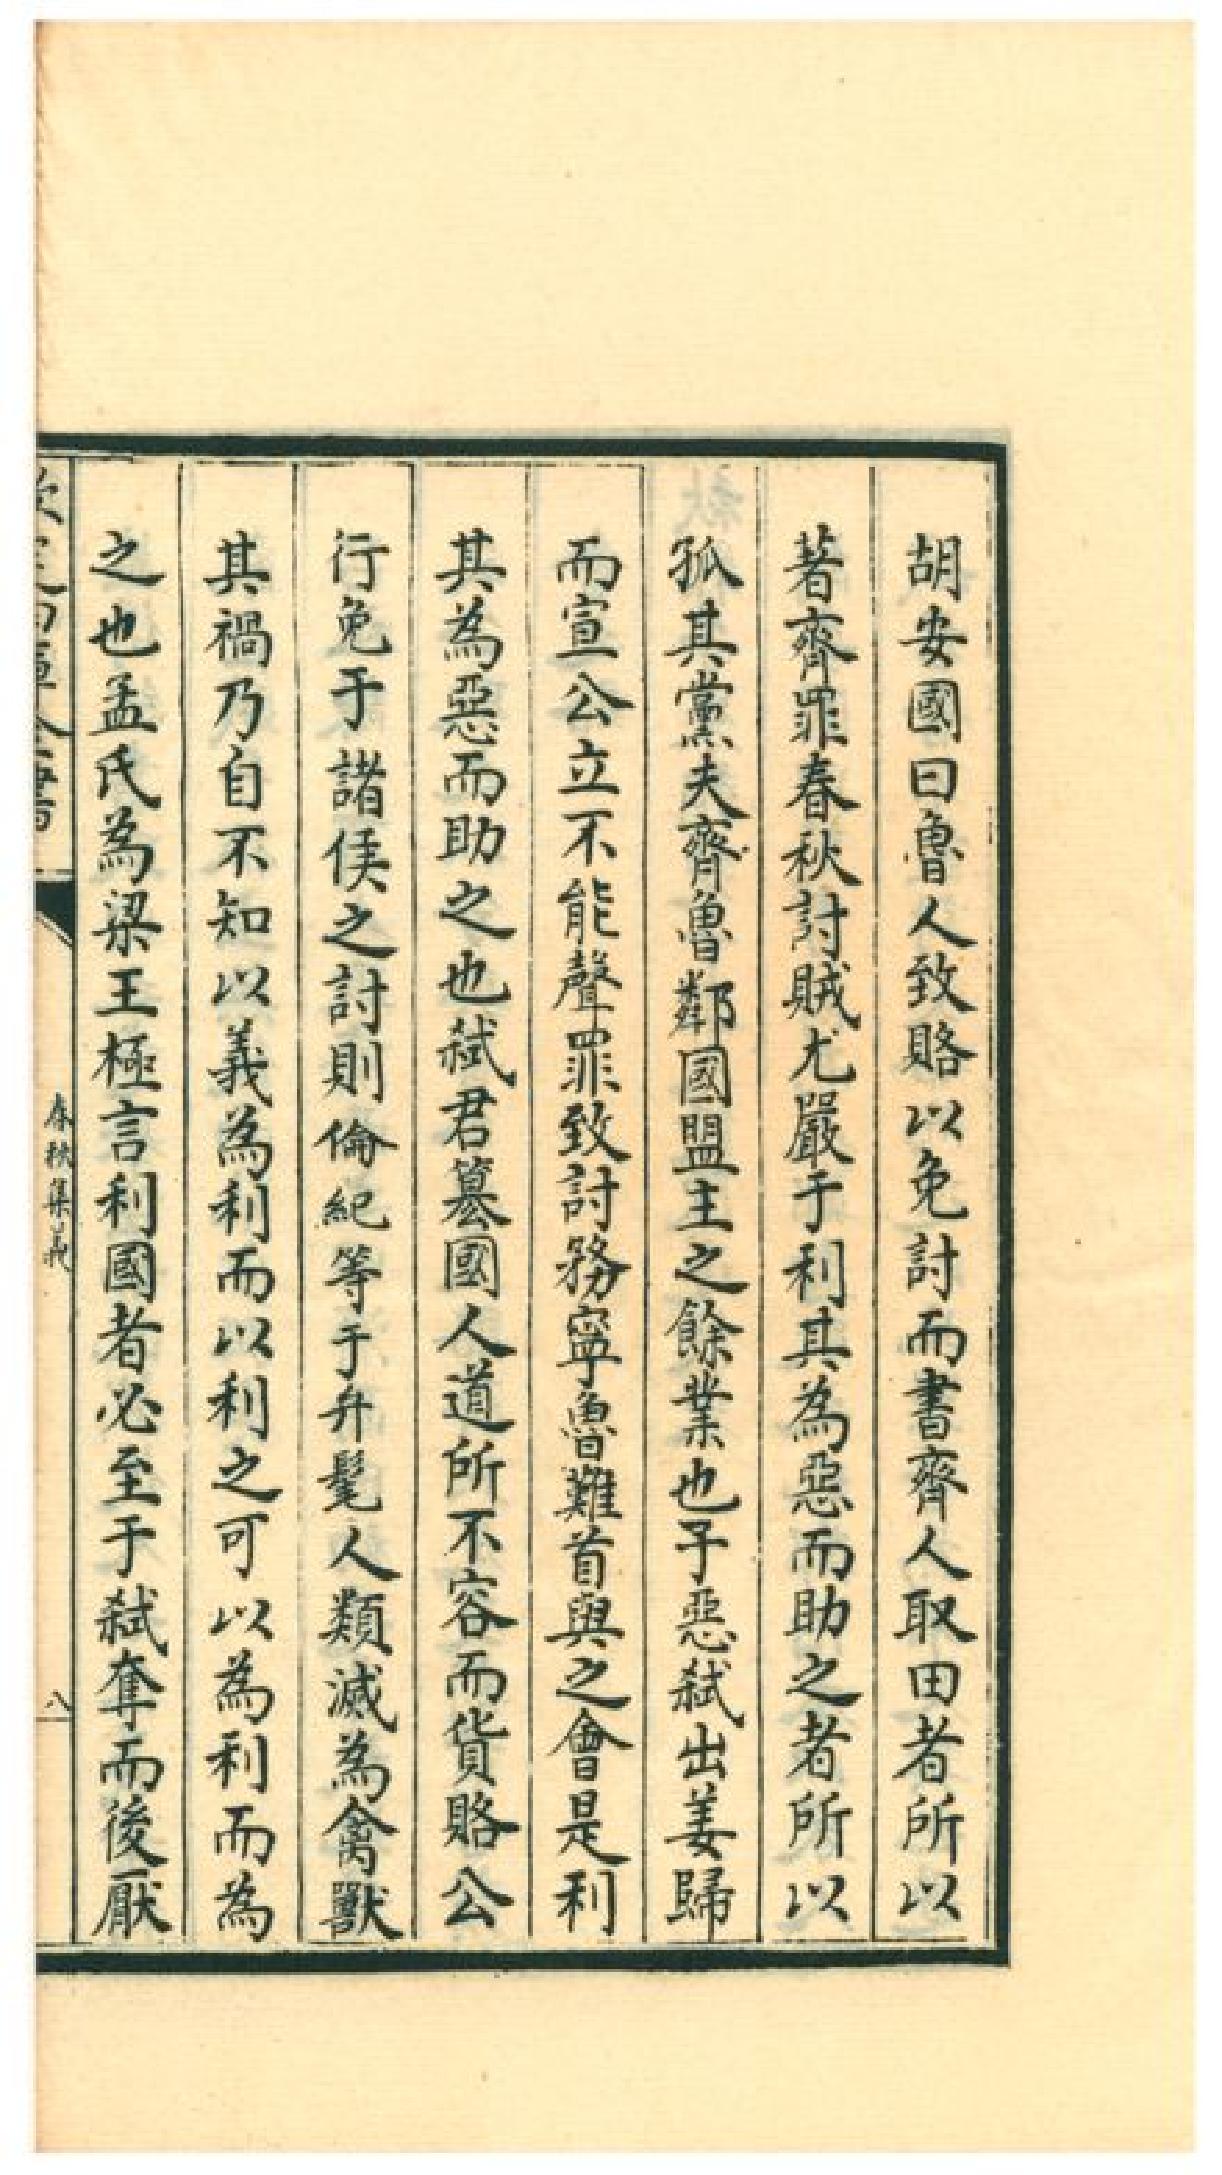 胡安國曰魯人致賂以免討而書齊人取田者所以
著齊罪春秋討賊尤嚴于利其為惡而助之者所以
孤其黨夫齊魯鄰國盟主之餘業也子惡弒出姜歸
而宣公立不能聲罪致討務寧魯難首與之會是利
其為惡而助之也弒君簒國人道所不容而貨賂公
行免于諸侯之討則倫紀等于弁髦人類滅為禽獸
其禍乃自不知以義為利而以利之可以為利而為
之也孟氏為梁王極言利國者必至于弒奪而後厭
春秋集義
八